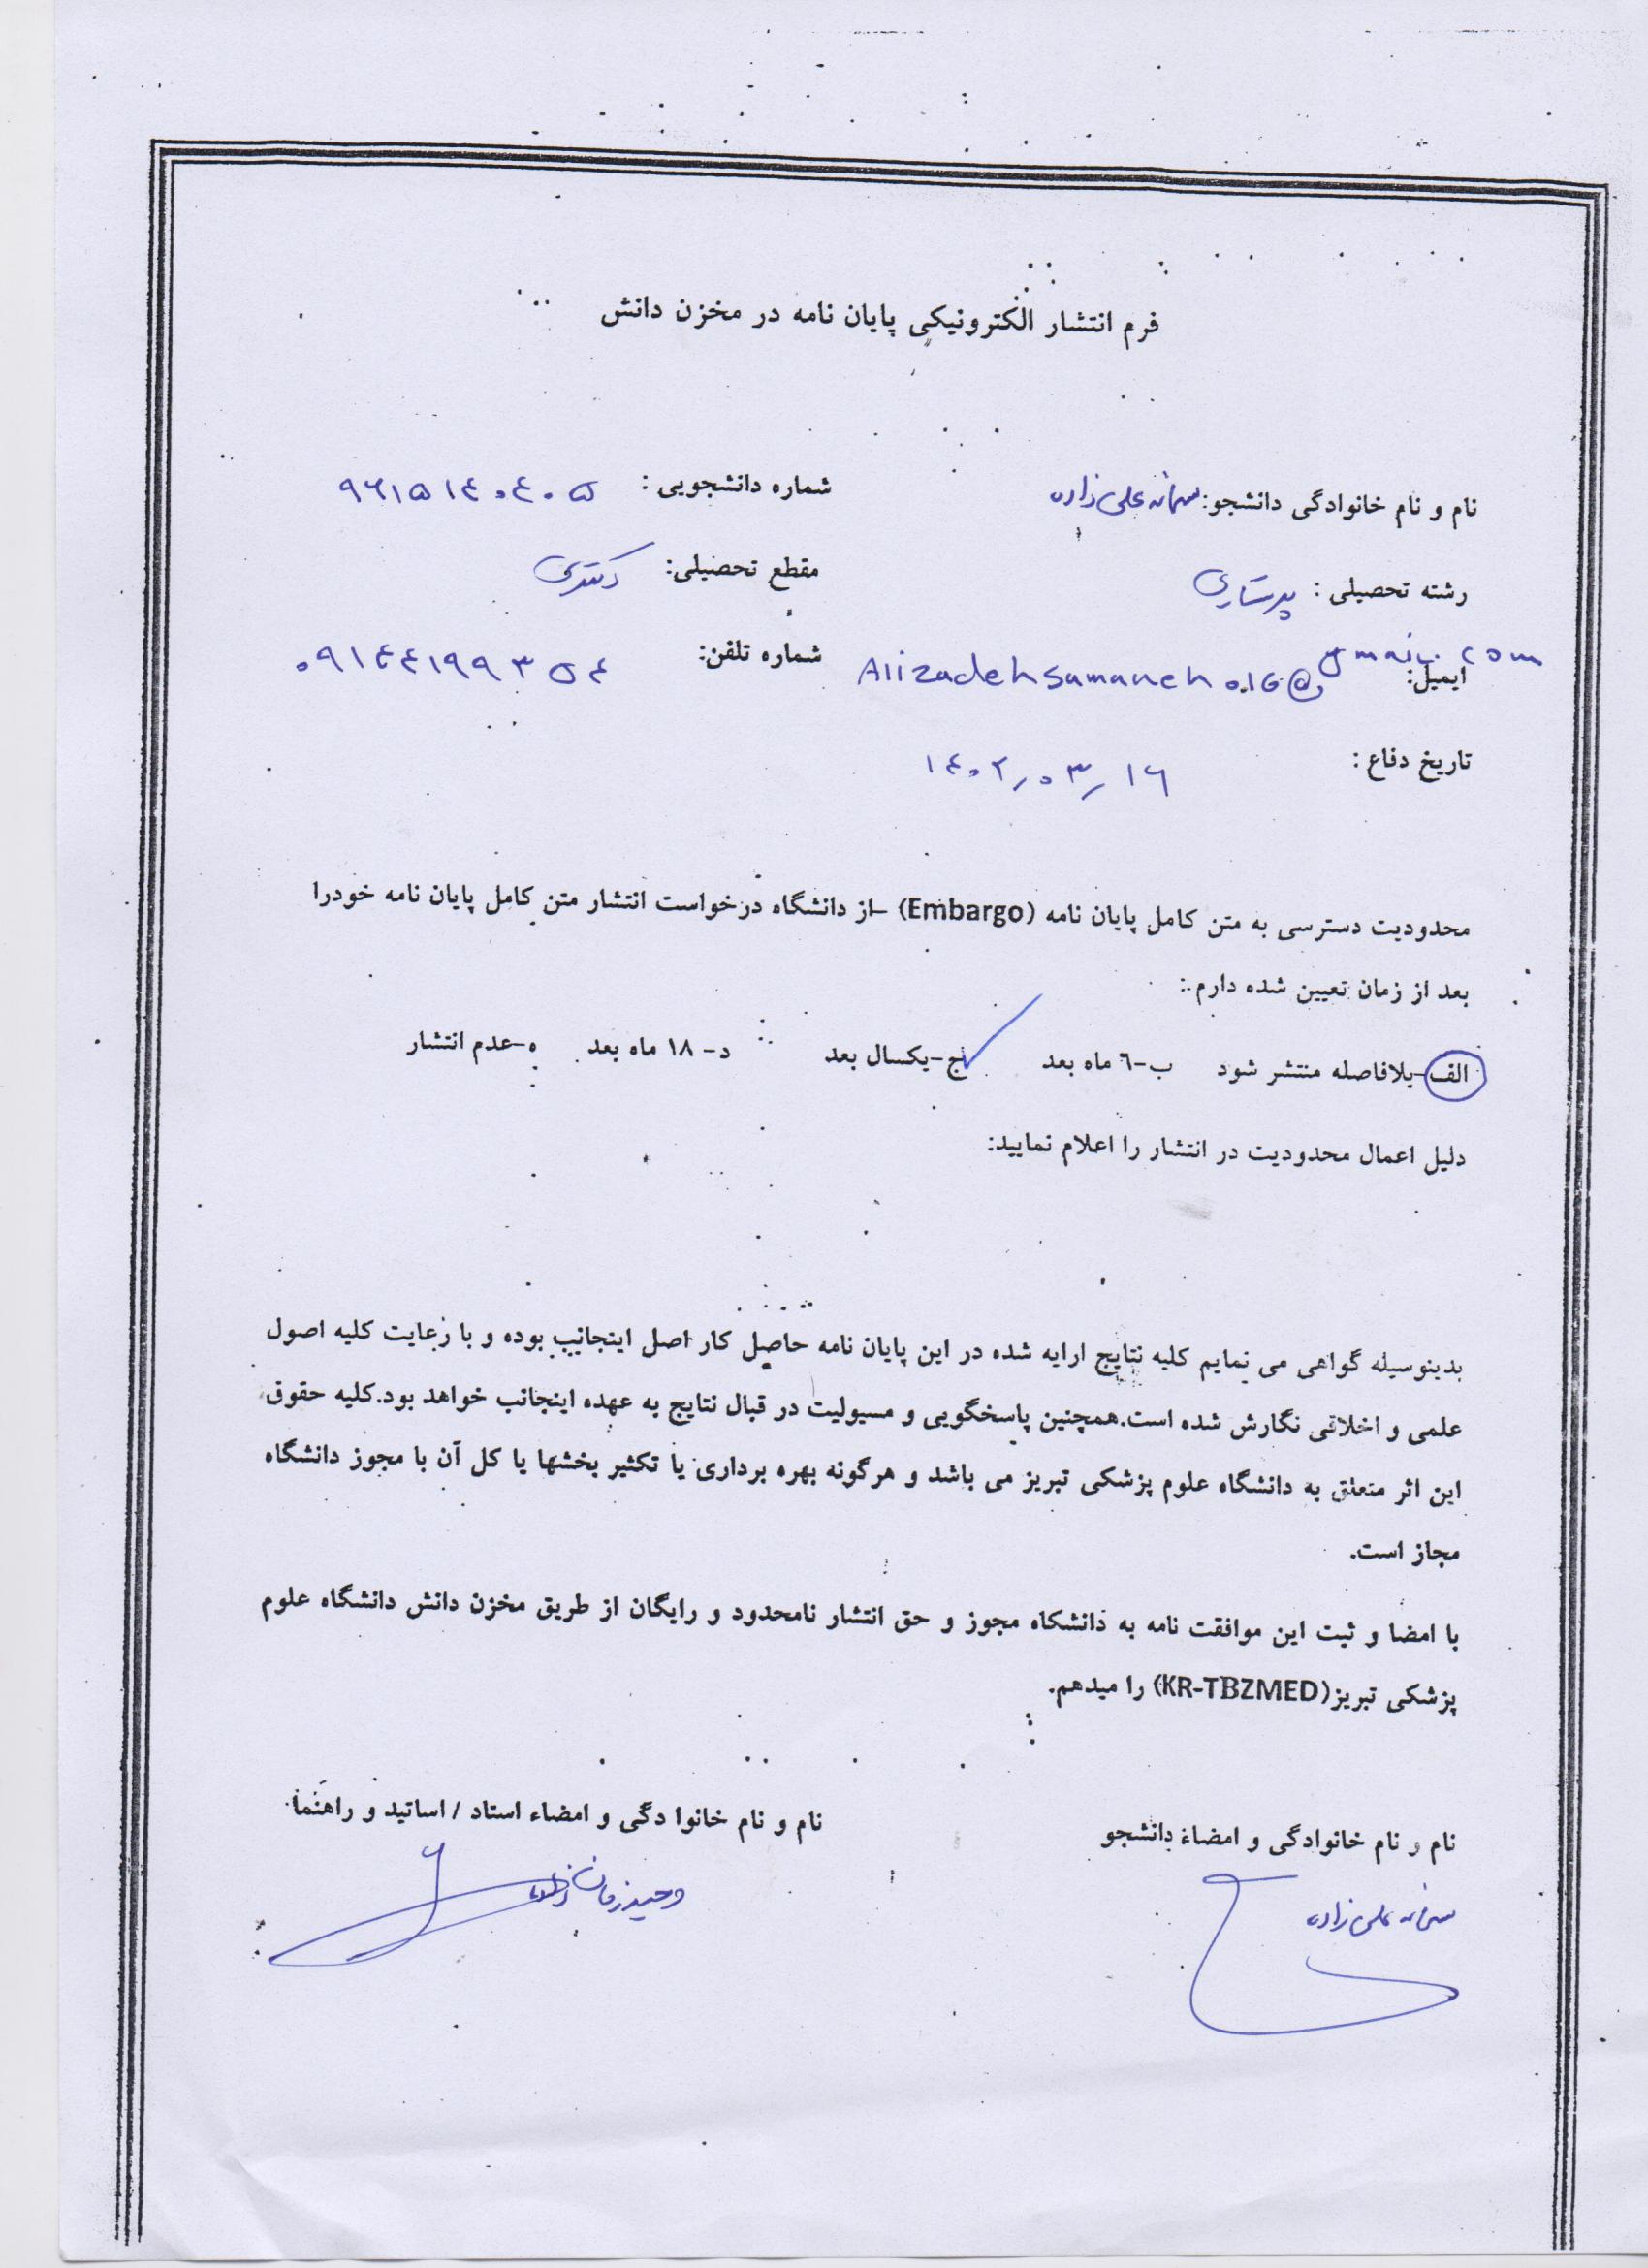 فرم انتشار الکترونیکی پایان نامه در مخزن دانش
نام و نام خانوادگی دانشجو: سمانه علی زاده شماره دانشجویی: ۹۶۱۵۱۴۰۴۰۵
رشته تحصیلی: پرستاری مقطع تحصیلی: دکتری
ایمیل: Alizadehsamaneh016@gmail.com شماره تلفن:
تاریخ دفاع: ۱۴۰۲/۰۳/۱۶
محدودیت دسترسی به متن کامل پایان نامه (Embargo) -از دانشگاه درخواست انتشار متن کامل پایان نامه خودرا
بعد از زمان تعیین شده دارم:
الف-بلافاصله منتشر شود ب-٦ ماه بعد ج-یکسال بعد د- ۱۸ ماه بعد ه-عدم انتشار
دلیل اعمال محدودیت در انتشار را اعلام نمایید:
بدینوسیله گواهی می نمایم کلیه نتایج ارایه شده در این پایان نامه حاصل کار اصل اینجانب بوده و با رعایت کلیه اصول
علمی و اخلاقی نگارش شده است.همچنین پاسخگویی و مسیولیت در قبال نتایج به عهده اینجانب خواهد بود.کلیه حقوق
این اثر متعلق به دانشگاه علوم پزشکی تبریز می باشد و هرگونه بهره برداری یا تکثیر بخشها یا کل آن با مجوز دانشگاه
مجاز است.
با امضا و ثبت این موافقت نامه به دانشکاه مجوز و حق انتشار نامحدود و رایگان از طریق مخزن دانش دانشگاه علوم
پزشکی تبریز(KR-TBZMED) را میدهم.
نام و نام خانوادگی و امضاء دانشجو نام و نام خانوا دگی و امضاء استاد / اساتید و راهنما
سمانه علی زاده وحید زمان زاده